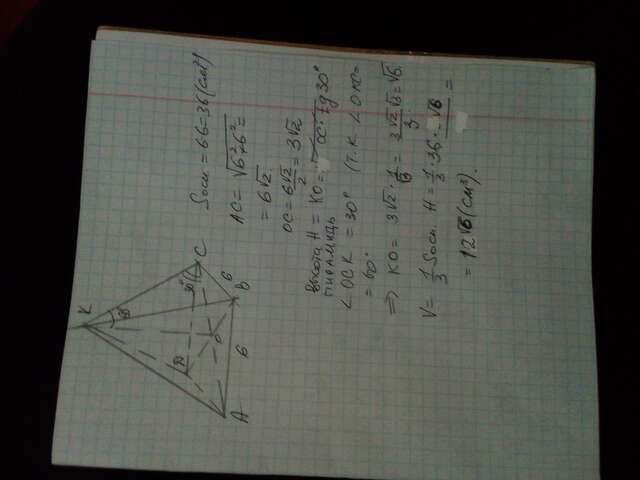 K
60°
30°
C
D
O
6
B
6
A
Sосн = 6·6=36(см²)
AC= √6²+6²=
= 6√2.
OC= 6√2/2 = 3√2
Высота H = KO = OC·tg30°
пирамиды
∠OCK = 30° (т.к. ∠OKC=
= 60°
=> KO= 3√2 · 1/√3 = 3√2√3/3 =√6.
V= 1/3 Sосн. H = 1/3 ·36·√6 =
= 12√6(см³).